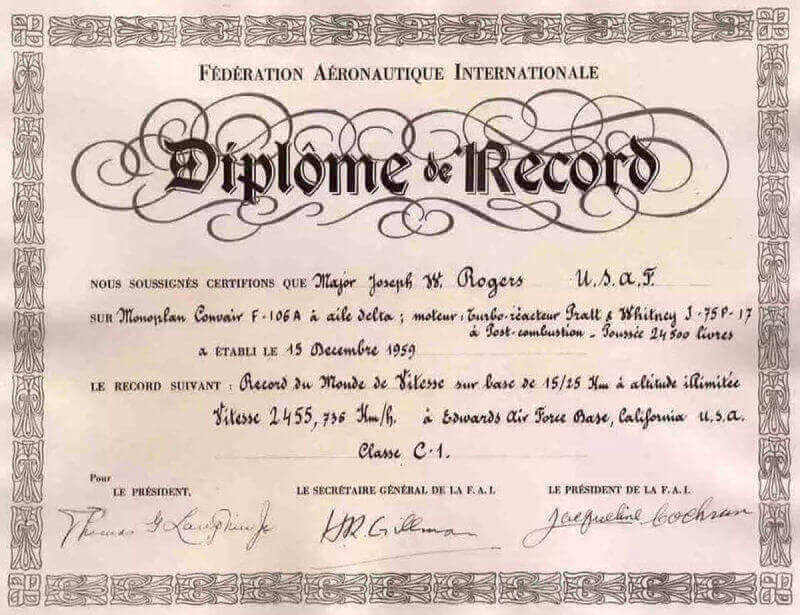 FÉDÉRATION AÉRONAUTIQUE INTERNATIONALE
Diplôme de Record
NOUS SOUSSIGNÉS CERTIFIONS QUE Major Joseph W. Rogers U.S.A.F.
SUR Monoplan Convair F-106A à aile delta ; moteur : Turbo-réacteur Pratt & Whitney J-75P-17
à Post-combustion - Poussée 24500 livres
A ÉTABLI LE 15 Decembre 1959
LE RECORD SUIVANT : Record du Monde de Vitesse sur base de 15/25 Km à altitude illimitée
Vitesse 2455,736 Km/h. à Edwards Air Force Base, California U.S.A.
Classe C-1.
Pour
LE PRÉSIDENT, LE SECRÉTAIRE GÉNÉRAL DE LA F.A.I. LE PRÉSIDENT DE LA F.A.I.
Thomas G Lanphier Jr HR Gillman Jacqueline Cochran